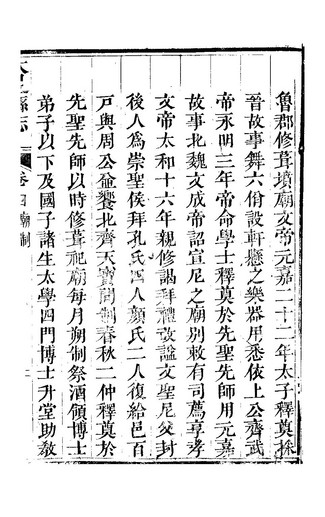 魯郡修葺墳廟文帝元嘉二十二年太子釋奠採
晉故事舞六佾設軒懸之樂器用悉依上公齊武
帝永明三年帝命學士釋奠於先聖先師用元嘉
故事北魏文成帝詔宣尼之廟別敕有司薦享孝
文帝太和十六年親修謁拜禮改謚文聖尼父封
後人為崇聖侯拜孔氏四人顏氏二人復給邑百
戸與周公並饗北齊天寶間制春秋二仲釋奠於
先聖先師以時修葺祀廟每月朔制祭酒領博士
弟子以下及國子諸生太學四門博士升堂助教
縣志
卷四 廟制